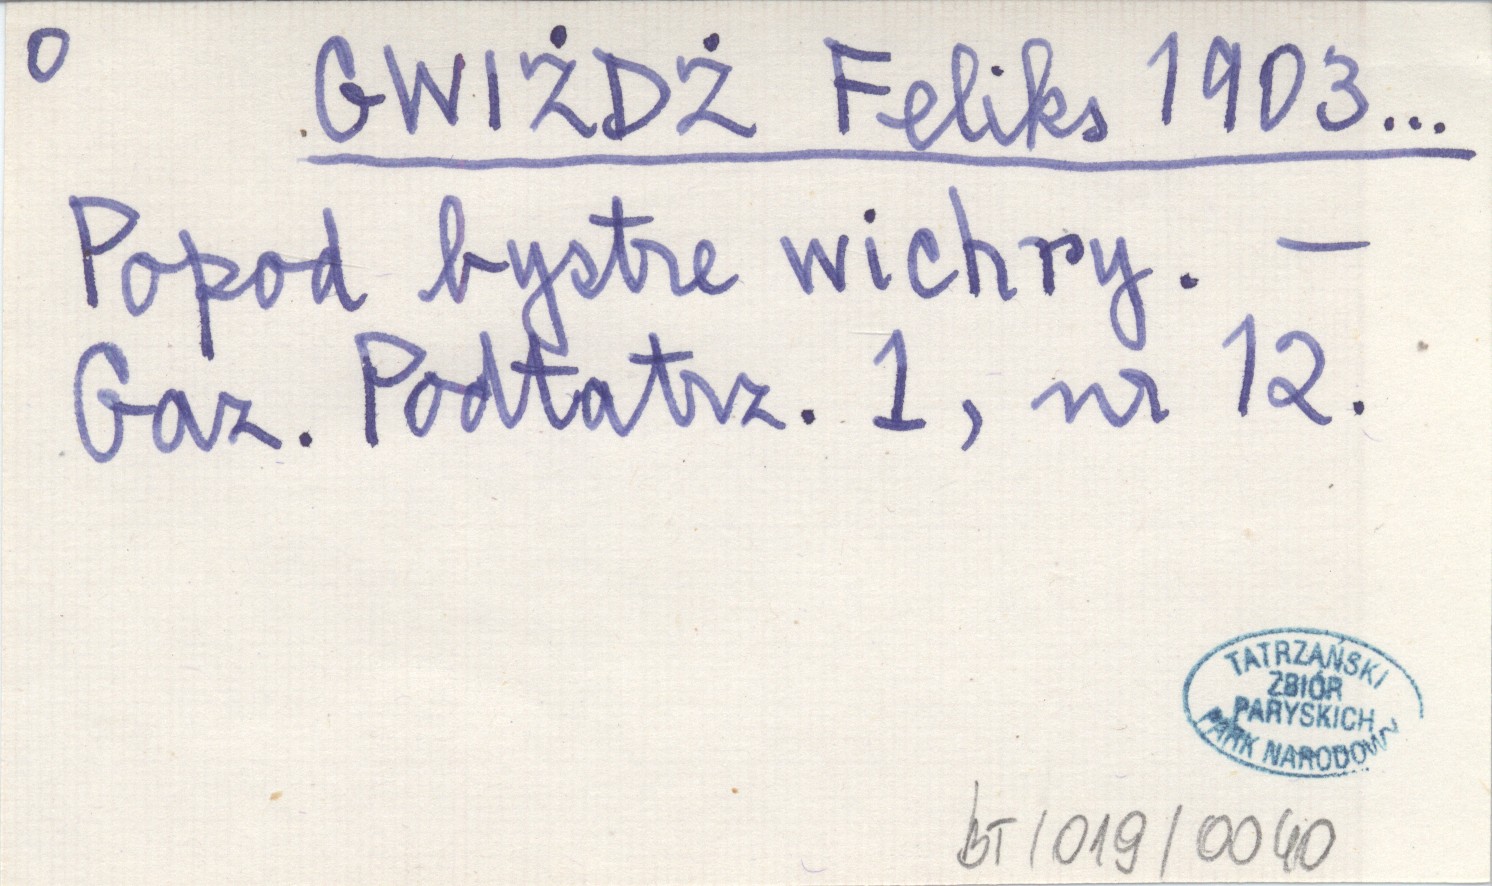 O
GWIŻDŻ Feliks 1903...
Popod bystre wichry. —
Gaz. Podtatrz. 1, nr 12.
TATRZAŃSKI
ZBIÓR
PARYSKICH
PARK NARODOWY
BT/019/0040